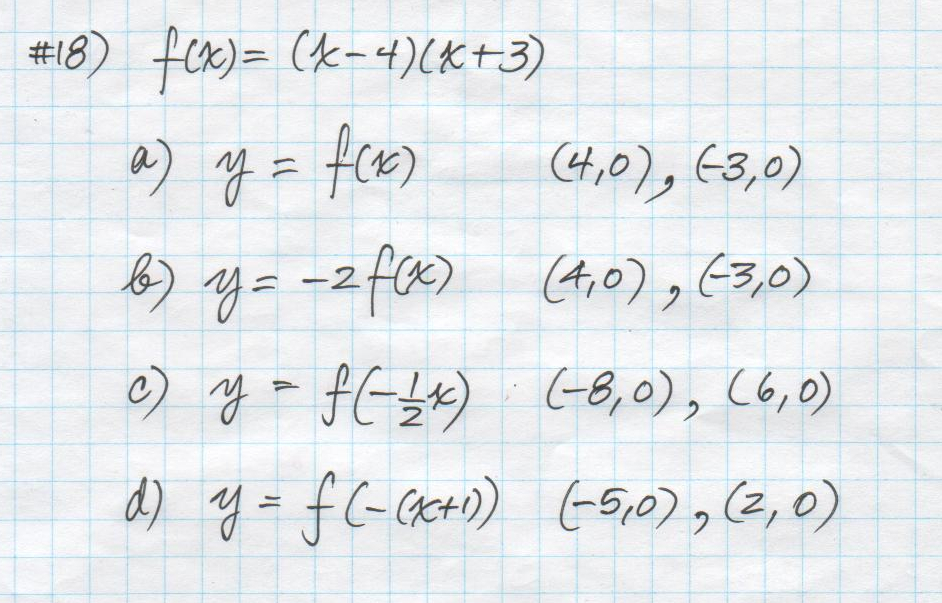 #18) f(x) = (x-4)(x+3)
a) y = f(x) (4,0), (-3,0)
b) y = -2f(x) (4,0), (-3,0)
c) y = f(-½x) (-8,0), (6,0)
d) y = f(-(x+1)) (-5,0), (2,0)